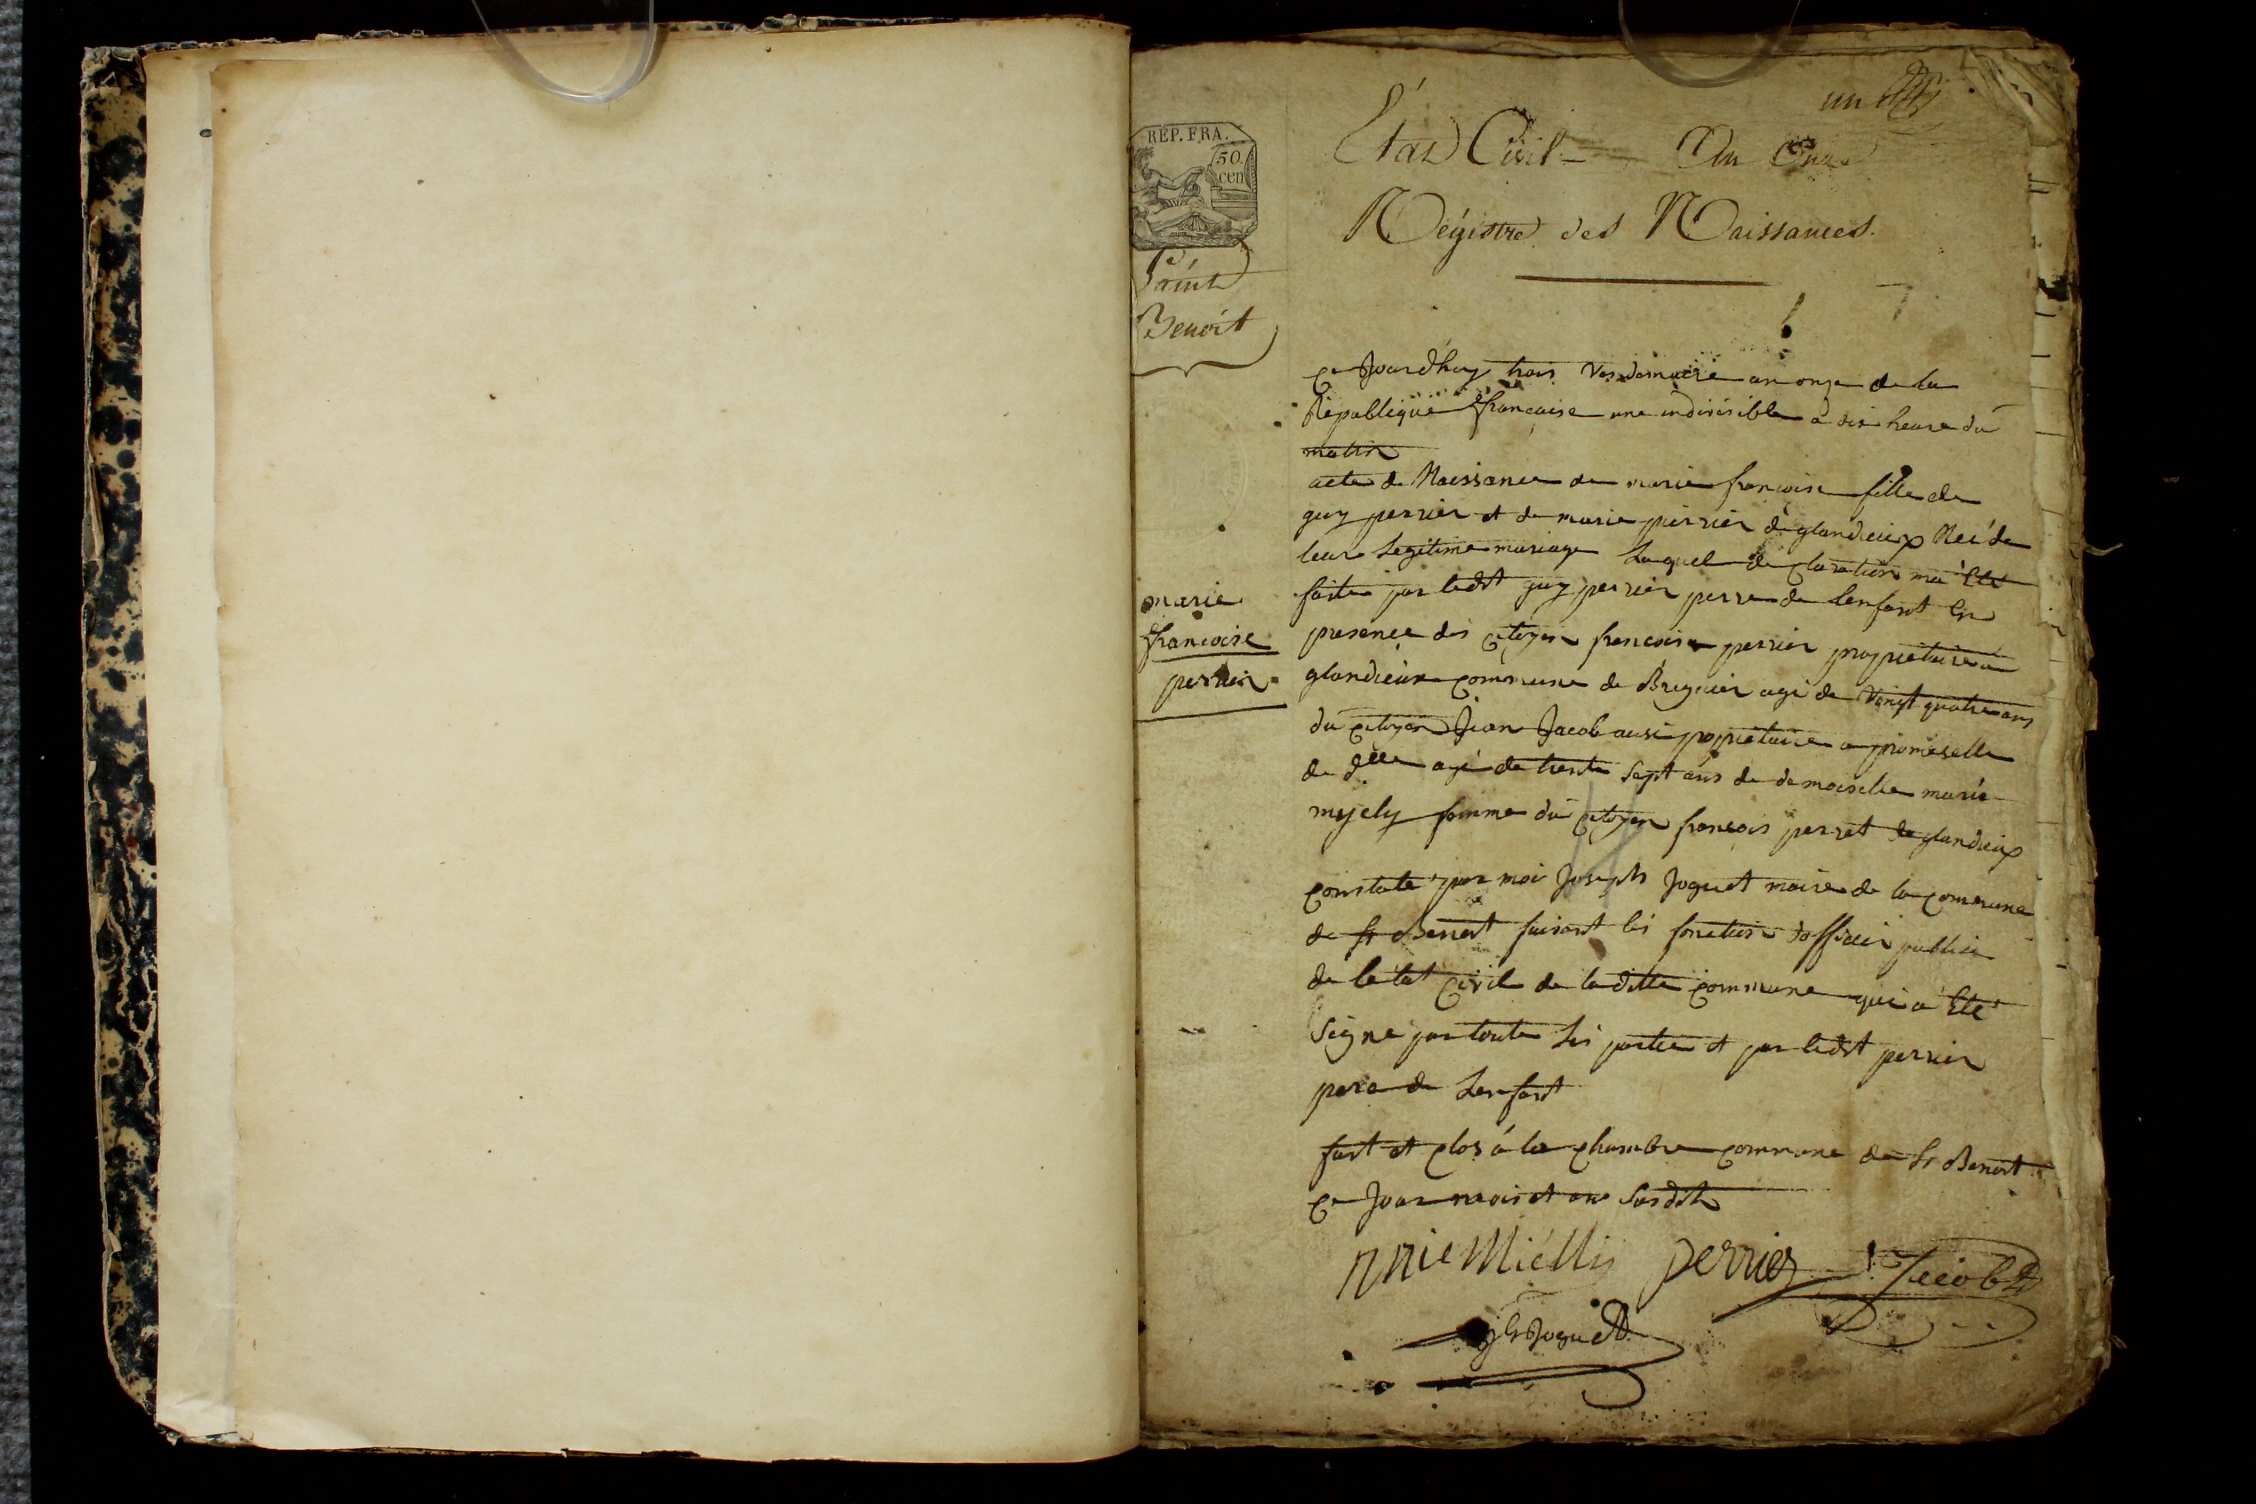 un
RÉP. FRA.
50
cen
Etat Civil - An Onze
Régistre des Naissances.
Saint
Benoit
Ce Jourd'huy trois Vendemiere an onze de la
République francaise une indivisible a dix heure du
matin
acte de Naissance de marie francoise fille de
guy perrier et de marie perrier de glandieux Née de
leur Legitime mariage Laquel declaration ma Eté
faite par ledit guy perrier perre de Lenfant En
presence des Citoyen francoise perrier propriétaire a
glandieux commune de Bregnier agé de Vingt quatre ans
du citoyen Jean Jacob ausi propriétaire a promeselle
de agé de trente Sept ans de demoiselle marie
myely femme du citoyen françois perret de glandieux
marie
francoise
perrier
Constate par moi Joseph Joguet maire de la commune
de St Benoit faisant les fonction dofficier publice
de letat Civil de laditte commune qui a Eté
Signe par toute Les partie et par ledit perrier
pere de Lenfant
fait et clos á la chambre commune de St Benoit
Ce Jour mois et an Susdit
Miéllis perrier J. Jacob
Jh Joguet